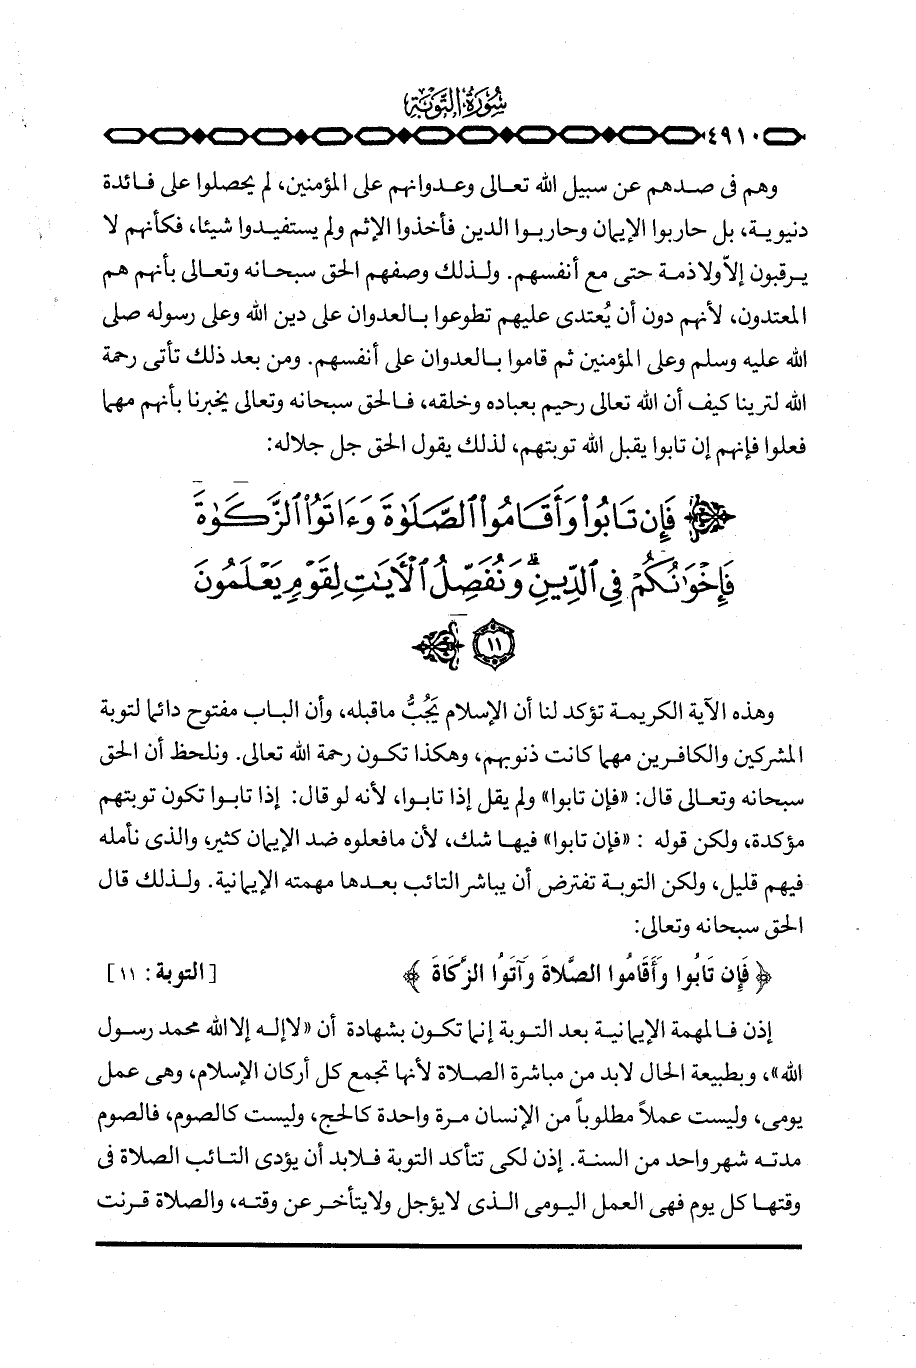 سُورَةُ التَّوْبَةِ
٤٩١٠
وهم فى صدهم عن سبيل الله تعالى وعدوانهم على المؤمنين، لم يحصلوا على فائدة
دنيوية، بل حاربوا الإيمان وحاربوا الدين فأخذوا الإثم ولم يستفيدوا شيئا، فكأنهم لا
يرقبون إلاّ ولاذمة حتى مع أنفسهم. ولذلك وصفهم الحق سبحانه وتعالى بأنهم هم
المعتدون، لأنهم دون أن يُعتدى عليهم تطوعوا بالعدوان على دين الله وعلى رسوله صلى
الله عليه وسلم وعلى المؤمنين ثم قاموا بالعدوان على أنفسهم. ومن بعد ذلك تأتى رحمة
الله لترينا كيف أن الله تعالى رحيم بعباده وخلقه، فالحق سبحانه وتعالى يخبرنا بأنهم مهما
فعلوا فإنهم إن تابوا يقبل الله توبتهم، لذلك يقول الحق جل جلاله:
فَإِن تَابُوا۟ وَأَقَامُوا۟ ٱلصَّلَوٰةَ وَءَاتَوُا۟ ٱلزَّكَوٰةَ
فَإِخْوَٰنُكُمْ فِى ٱلدِّينِ ۗ وَنُفَصِّلُ ٱلْـَٔايَـٰتِ لِقَوْمٍ يَعْلَمُونَ
١١
وهذه الآية الكريمة تؤكد لنا أن الإسلام يَجُبُّ ماقبله، وأن الباب مفتوح دائما لتوبة
المشركين والكافرين مهما كانت ذنوبهم، وهكذا تكون رحمة الله تعالى. ونلحظ أن الحق
سبحانه وتعالى قال: «فإن تابوا» ولم يقل إذا تابوا، لأنه لو قال: إذا تابوا تكون توبتهم
مؤكدة، ولكن قوله : «فإن تابوا» فيها شك، لأن مافعلوه ضد الإيمان كثير، والذى نأمله
فيهم قليل، ولكن التوبة تفترض أن يباشر التائب بعدها مهمته الإيمانية. ولذلك قال
الحق سبحانه وتعالى:
﴿ فَإِن تَابُوا وَأَقَامُوا الصَّلاةَ وَآتَوُا الزَّكَاةَ ﴾ [التوبة: ١١]
إذن فالمهمة الإيمانية بعد التوبة إنما تكون بشهادة أن «لاإله إلا الله محمد رسول
الله»، وبطبيعة الحال لابد من مباشرة الصلاة لأنها تجمع كل أركان الإسلام، وهى عمل
يومى، وليست عملاً مطلوباً من الإنسان مرة واحدة كالحج، وليست كالصوم، فالصوم
مدته شهر واحد من السنة. إذن لكى تتأكد التوبة فلابد أن يؤدى التائب الصلاة فى
وقتها كل يوم فهى العمل اليومى الذى لايؤجل ولايتأخر عن وقته، والصلاة قرنت